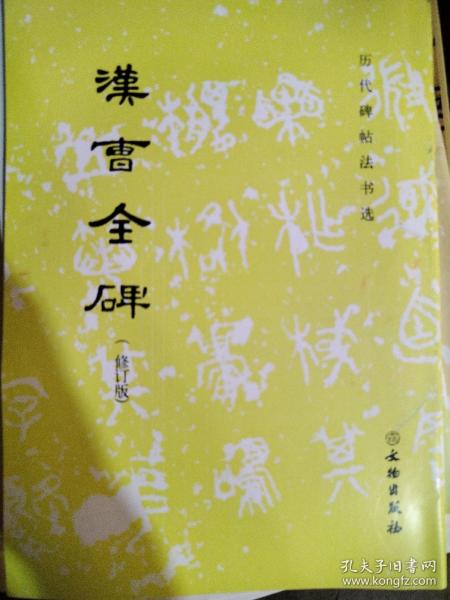 历代碑帖法书选
漢曹全碑
(修订版)
文物出版社
孔夫子旧书网
www.kongfz.com